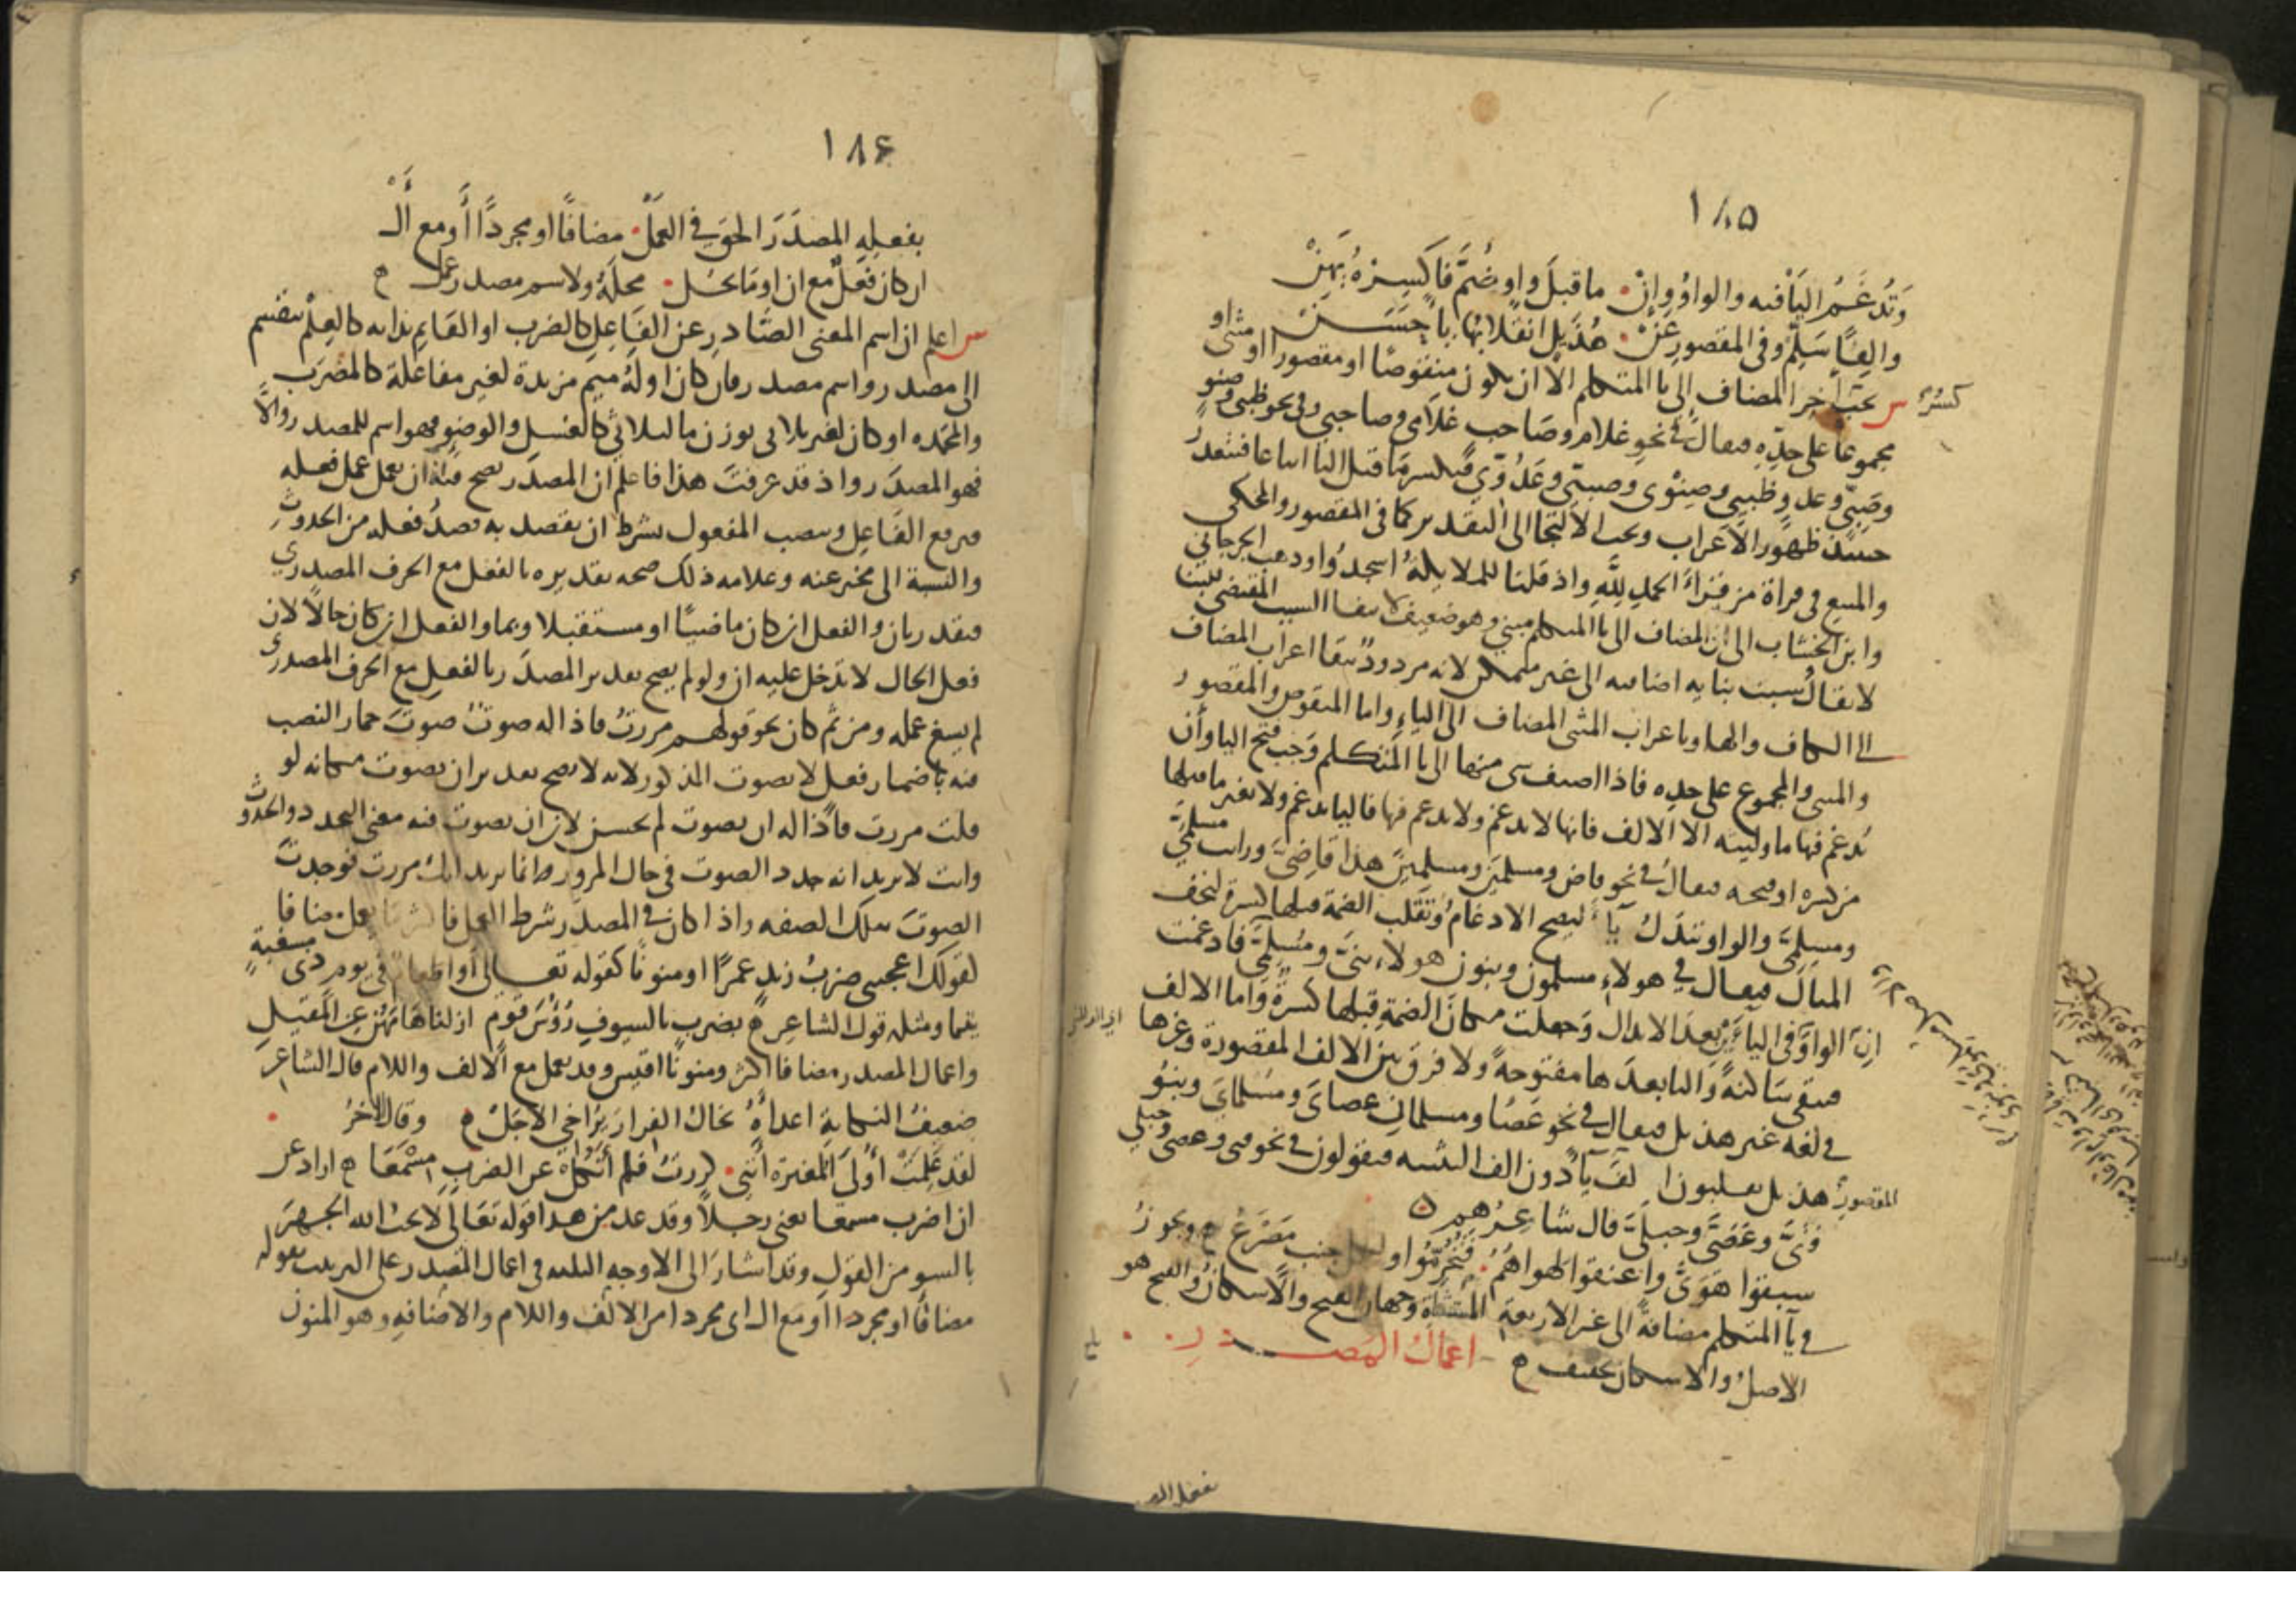 ١٨٥
وَتُدْغَمُ اليَا فيه والواوُ وإنْ ما قبلَ واو ضُمَّ فاكسِرْهُ يَهُنْ
والِفًا سَلِّمْ وفى المقصورِ عَنْ هُذَيلٍ انقلابُها ياءً حَسَنْ
كسْرُ
س يجب آخِر المضاف الى يا المتكلم الا ان يكون منقوصًا او مقصورا او مثنى او
مجموعا على حدِّه فيقالُ فى نحو غلام وصَاحب غلامى وصاحبى وفى نحو ظبى وصنو
وصَبىّ وعدو ظبيى وصِنْوى وصبيّى وعَدُوّى فيكسر ما قبل اليا اتباعا فتتعذر
حينئذ ظهور الاعراب ويجب الالتجا الى التقدير كما فى المقصور والمحكى
والمتبع فى قراة من قرأ الحمدِ لِلَّهِ واذ قلنا للملايكةُ اسجدُوا وذهب الجرجانى
وابن الخشاب الى ان المضاف الى يا المتكلم مبنى وهو ضعيف لانتفا السبب المقتضى للبنا
لا يقالُ سبب بنايه اضافته الى غير متمكن لانه مردودٌ ببقا اعراب المضاف
الى الكاف والها وباعراب المثنى المضاف الى الياءِ واما المنقوص والمقصور
والمثنى والمجموع على حدِه فاذا اضيف شى منها الى يا المتكلم وَجب فتح اليا وأن
يُدغم فيها ما وليته الا الالف فانها لا تدغم ولا يدغم فيها فاليا تدغم ولا يغير ما قبلها
من كسره او فتحه فيقالُ فى نحو قاض ومسلمَين ومسلمِينَ هذا قاضِىَّ ورايت مسلمَىَّ
ومسلِمِىَّ والواو تبدَلُ ياءً ليصح الادغامُ وتقلب الضمة قبلها كسرة لتخف
المثال فيقال فى هولاءِ مسلمون وبنون هولاءِ بنىَّ ومُسْلِمىَّ فادغمت
الواوَ فى الياءِ بعدَ الابدال وَجعلت مكانَ الضمةِ قبلها كسرةً واما الالف
فتبقى ساكنةً واليا بعدَها مفتوحةً ولا فرق بين الالف المقصورة وغيرها
فى لغه غير هذيل فيقال فى نحو عَصًا ومسلمانِ عصاىَ ومُسْلماىَ وبنو
المقصورُ هذيل يقلبون الفَ يآءً دون الف التثنيه فيقولون فى نحو فتى وعصى وحبلى
فَتَىَّ وعَصَىَّ وحبلَىَّ قال شاعِرُهم
سبقوا هَوَىَّ وأعنقوا لهواهُمُ فَتُخُرِّمُوا ولكل جنب مَصْرَعُ ويجوزُ
فى يآ المتكلم مضافةً الى غير الاربعةِ المستثناة وجهان الفتح والاسكانُ والفتح هو
الاصلُ والاسكان تخفيف اعمالُ المصدرِ
١٨٦
بفعلِهِ المصدَرَ الحق فى العَمَلْ مضافًا او مجردًا أَو مع أَلْ
ان كان فِعْلٌ مع ان او مَا يَحُل محلَّهُ ولاسم مصدر عمل
س اعلم ان اسم المعنى الصَّادرِ عن الفَاعِلِ كالضرب او القايم بذاته كالعِلْم ينقسم
الى مصدر واسم مصدر فان كان اولُهُ ميم مزيدة لغير مفاعلة كالمضْرَب
والمحمده او كان لغير ثلاثى بوزن ما للثلاثى كالغسل والوضوء فهو اسم للمصدر والَّا
فهو المصدَر واذ قد عرفت هذا فاعلم ان المصدَر يصح فيه ان يعمل عمل فعله
فيرفع الفَاعِل وينصب المفعول بشرط ان يقصد به قصدُ فعله من الحدوثِ
والنسبة الى مخبر عنه وعلامه ذلك صحه تقديره بالفعل مع الحرف المصدرى
فيقدر بان والفعل ان كان ماضيًا او مستقبلا وبما والفعل ان كان حالًا لان
فعل الحال لا تدخل عليه ان ولو لم يصح تقدير المصدَر بالفعلِ مع الحرف المصدرى
لم يسغ عمله ومن ثم كان نحو قولهم مررتُ فاذا له صوتٌ صوتَ حمار النصب
فيه باضمار فعل لا بصوت المذكور لانه لا يصح تقدير ان يصوت مكانه لو
قلت مررت فاذا له ان يصوت لم يحسن لان ان يصوت فيه معنى التجدد والحدوث
وانت لا تريد انه جدد الصوت فى حال المرور وانما تريد انك مررت فوجدت
الصوتَ بتلك الصفه واذا كان فى المصدَر شرط العمل فاكثر ما يعمل مضافا
كقولك اعجبنى ضربُ زيدٍ عمرًا او منونًا كقوله تعالى أو اطعامٌ فى يوم ذى مسغبةٍ
يتيما ومثله قول الشاعر بضرب بالسيوف رُؤُسَ قوم ازلنا هَامَهُنَّ عن المَقيلِ
واعمال المصدر مضافا اكثر ومنونًا اقيس وقد يعمل مع الالف واللام قال الشاعر
ضعيفُ النكايةِ اعداءَهُ يخالُ الفرارَ يُرَاخى الاجَلْ وقال الاخرُ
لقد عَلِمَتْ أُولَى المغيرة أننى كررتُ فلم أَنْكُل عن الضربِ مِسْمَعَا اراد عن
ان اضرب مسمعا يعنى رجلًا وقد عد من هذا قوله تعَالى لا يحبُ الله الجهرَ
بالسو من القول وقد اشارَ الى الاوجهِ الثلثه فى اعمال المصدر على الترتيب بقوله
مضافًا او مجردا او مع ال اى مجردا من الالف واللام والاضافهِ وهو المنون